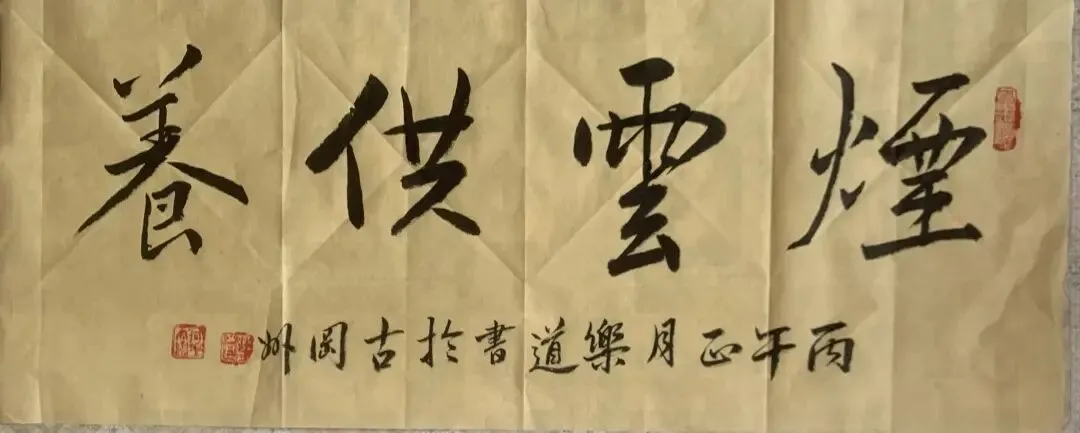 煙雲供養
丙午正月樂道書於古岡州